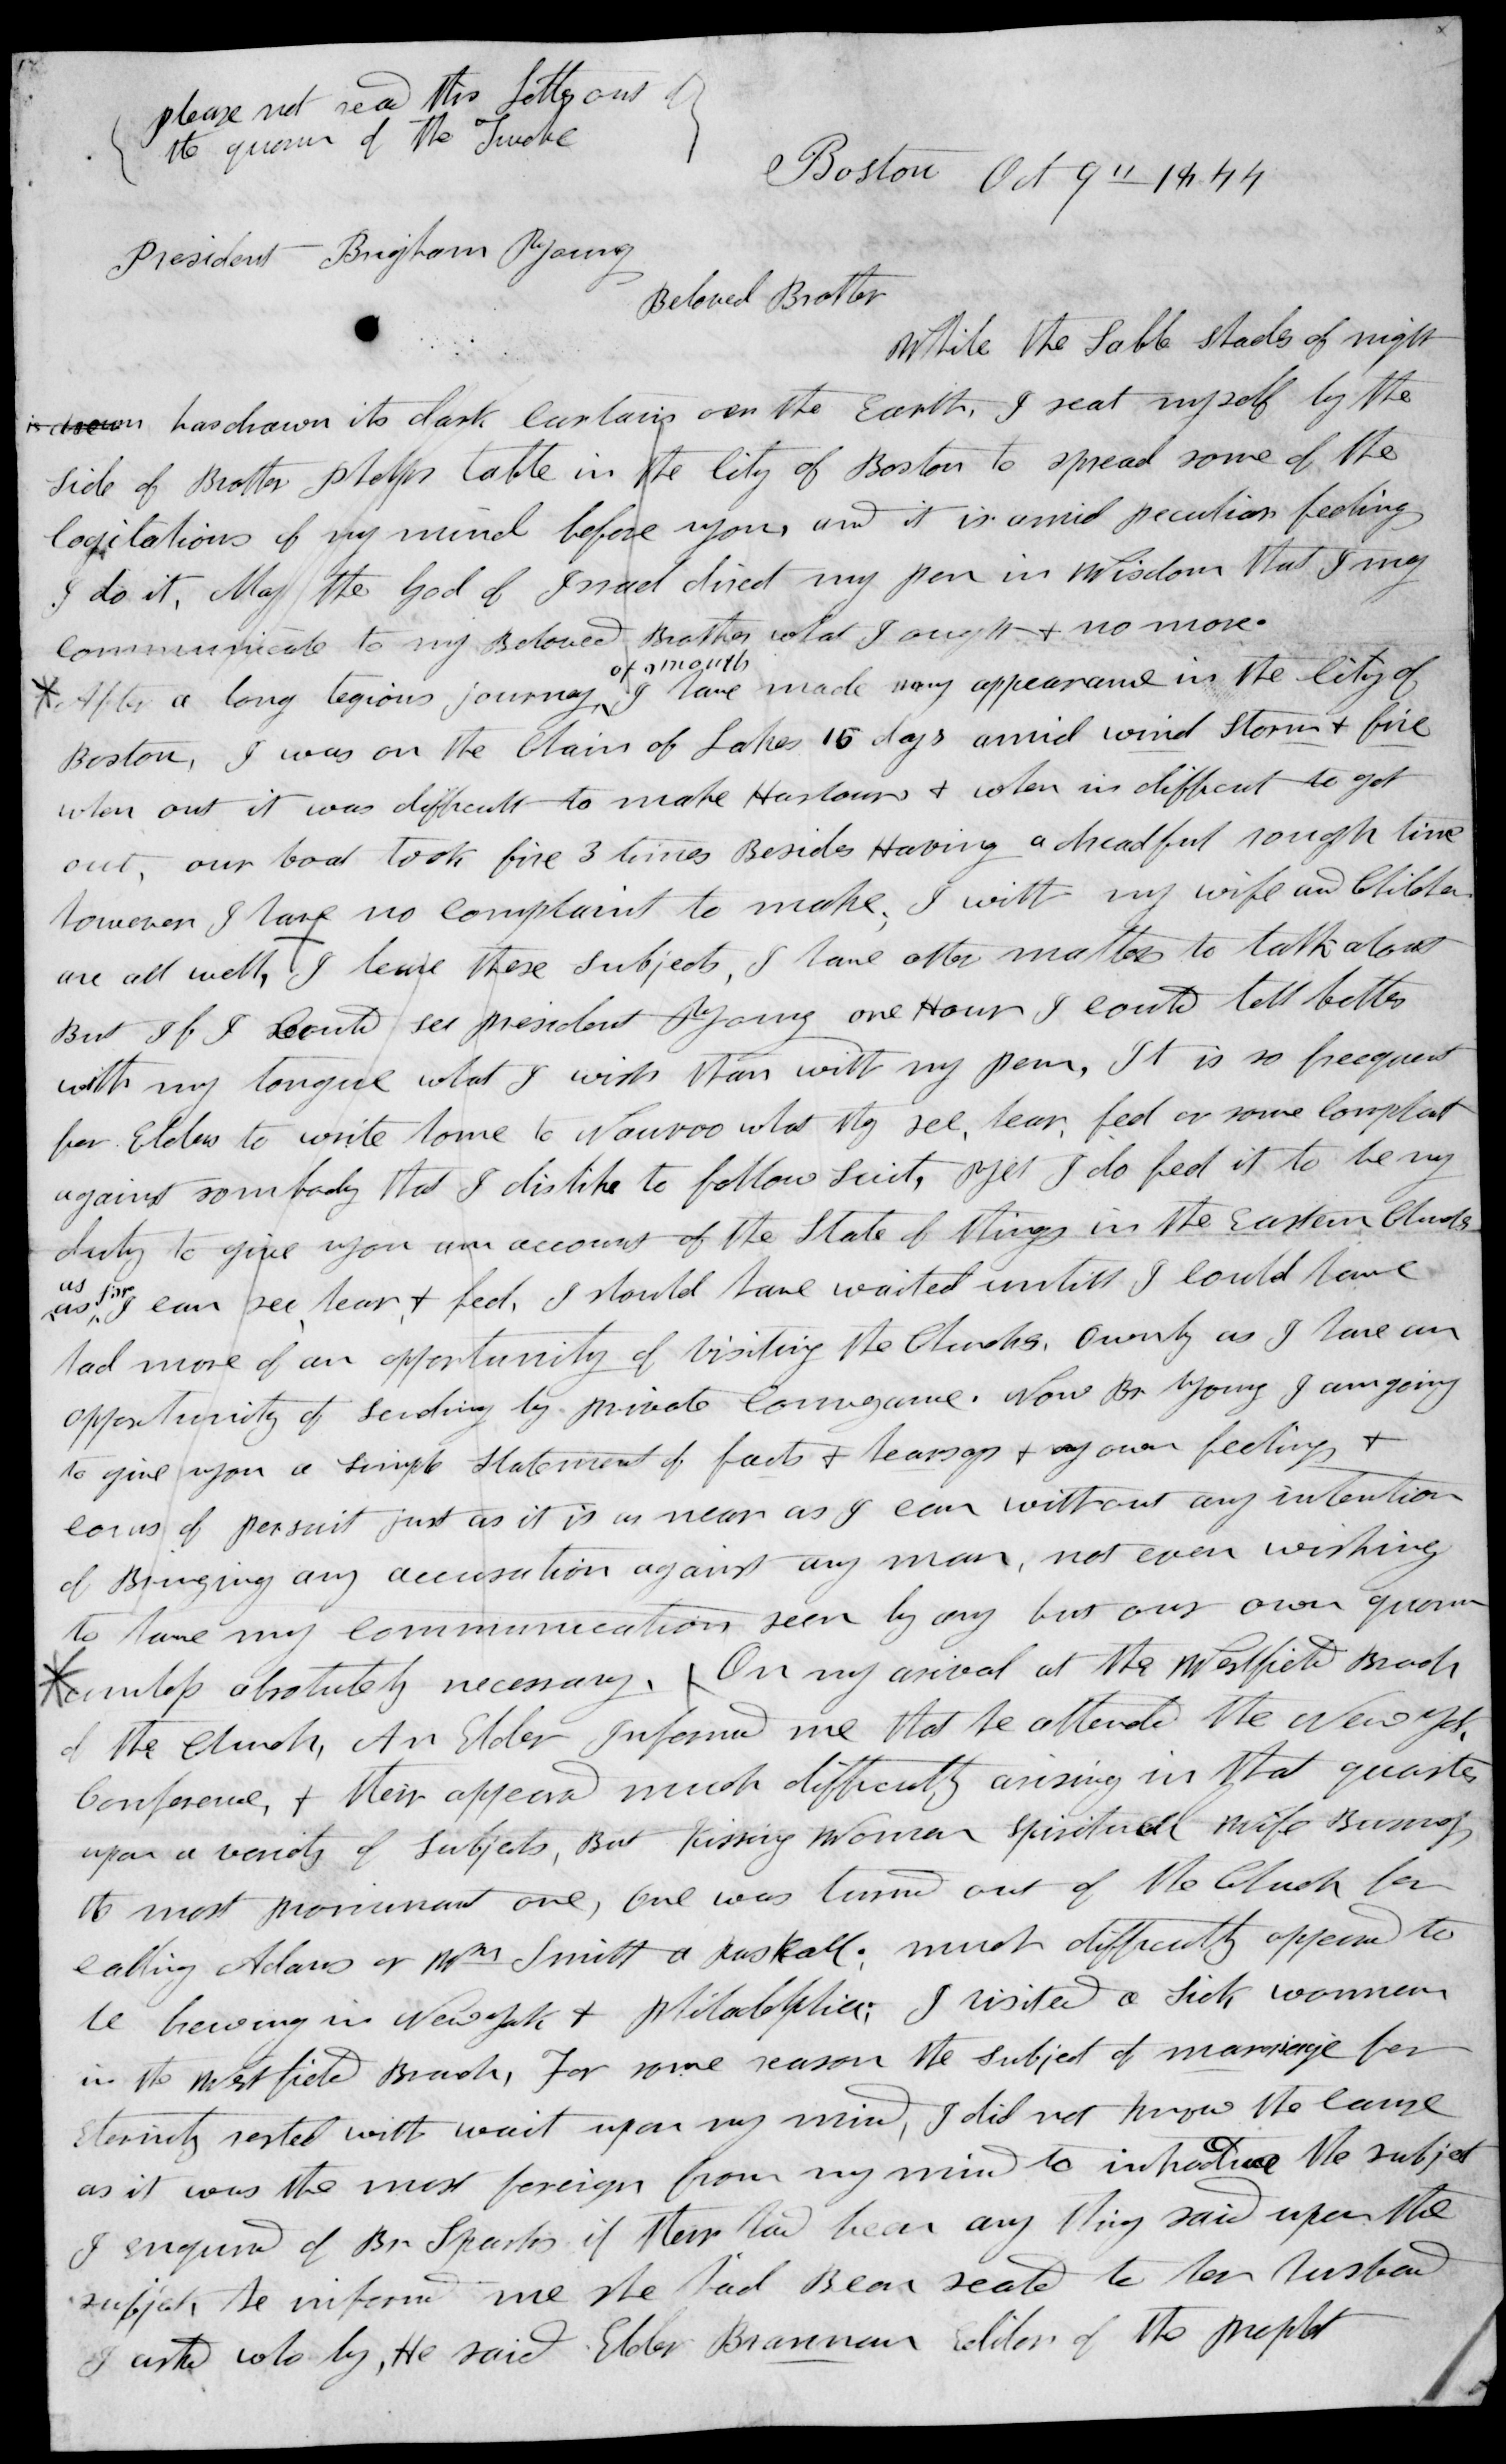 please not read this Letter out of
the quorum of the Twelve
Boston Oct 9th 1844
President Brigham Young
Beloved Brother
While the Sable shades of night
is drawn has drawn its dark Curtains over the Earth, I seat myself by the
side of Brother Phelps table in the City of Boston to spread some of the
Cogitations of my mind before you, and it is amid peculiar feelings
I do it, May the God of Israel direct my pen in Wisdom that I may
communicate to my Beloved Brother what I ought & no more.
* After a long tegious journey of a month I have made my appearance in the City of
Boston, I was on the Chain of Lakes 15 days amid wind Storm & fire
when out it was difficult to make Harbours & when in difficut to get
out, our boat took fire 3 times Besides Having a dreadful rough time
however I have no complaint to make, I with my wife and Children
are all well, I leave these subjects, I have other matters to talk about
But If I Could see president Young one Hour I could tell better
with my tongue what I wish than with my pen, It is so freequent
for Elders to write home to Nauvoo what they see, hear, feel or some Complaint
against sombody that I dislike to follow suit, yet I do feel it to be my
duty to give you an account of the State of things in the Eastern Churchs
as far as I can see, hear, & feel, I should have waited untill I could have
had more of an opportunity of visiting the Churchs. Ownly as I have an
opportunity of sending by private Conveyance. Now Br Young I am going
to give you a simple Statement of facts & hearsays & my own feelings &
corus of persuit just as it is as near as I can without any intention
of Bringing any accusation against any man, not even wishing
to have my communication seen by any but our own quorum
* unless absolutely necessary. On my arival at the Westfield Branch
of the Church, An Elder Informed me that he attended the New York
Conference, & their appeared much difficulty arising in that quarter
upon a variety of subjects, But Kissing Women Spiritual Wife Business
the most prominant one, one was turned out of the Church for
calling Adams or Wm Smith a Raskall. much difficulty appeared to
be brewing in New York & Philadelphia; I visited a sick womman
in the Westfield Branch, For some reason the subject of marriage for
Eternity rested with wait upon my mind, I did not know the cause
as it was the most foreign from my mind to introduce the subject
I enquired of Br Sparks if their had been any thing said upon the
subject, he informed me she had Been seald to her husband
I asked who by, He said Elder Brannan Editor of the prophet